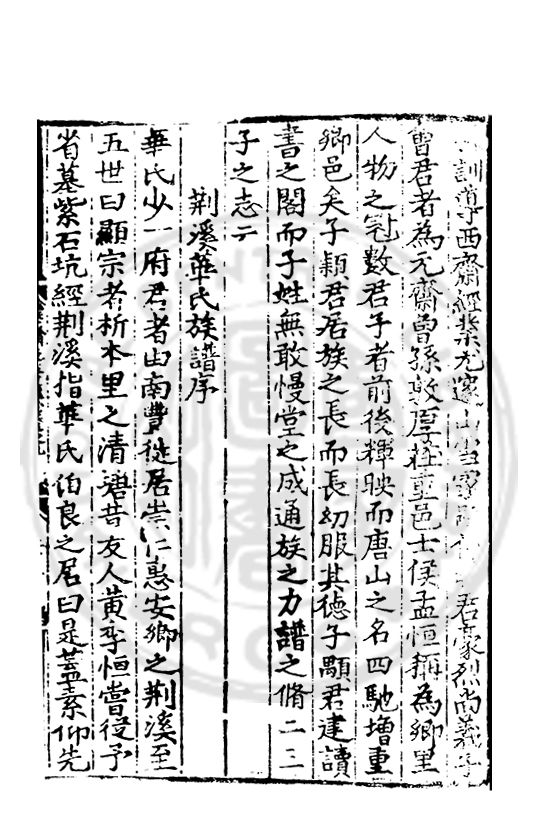 訓導西齋經紫尤邃山君豪烈尚義子
曾君者為元齋曾孫敦厚莊重邑士侯孟恒稱為鄉里
人物之冠數君子者前後輝映而唐山之名四馳增重
鄉邑矣子穎君居族之長而長幼服其德子顒君建讀
書之閣而子姓無敢慢堂之成通族之力譜之脩二三
子之志云
荆溪華氏族譜序
華氏少一府君者由南豐徙居崇仁惠安鄉之荆溪至
五世曰顯宗者析本里之清礶昔友人黃季恒嘗從予
省墓紫石坑經荆溪指華氏伯良之居曰是蓋素仰先